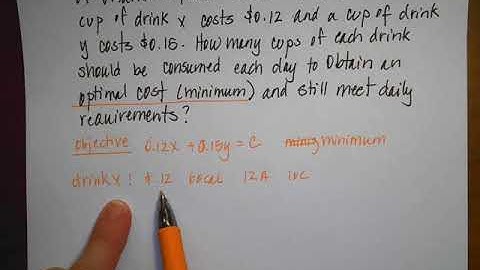 cup of drink x costs $0.12 and a cup of drink
y costs $0.15. How many cups of each drink
should be consumed each day to obtain an
optimal cost (minimum) and still meet daily
requirements?
objective 0.12x + 0.15y = C minimum
drink x: $.12 60cal 12A 10C